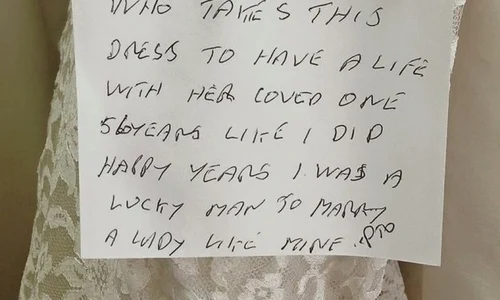 WHO TAKES THIS
DRESS TO HAVE A LIFE
WITH HER LOVED ONE
56YEARS LIKE I DID
HAPPY YEARS I WAS A
LUCKY MAN TO MARRY
A LADY LIKE MINE. PTO